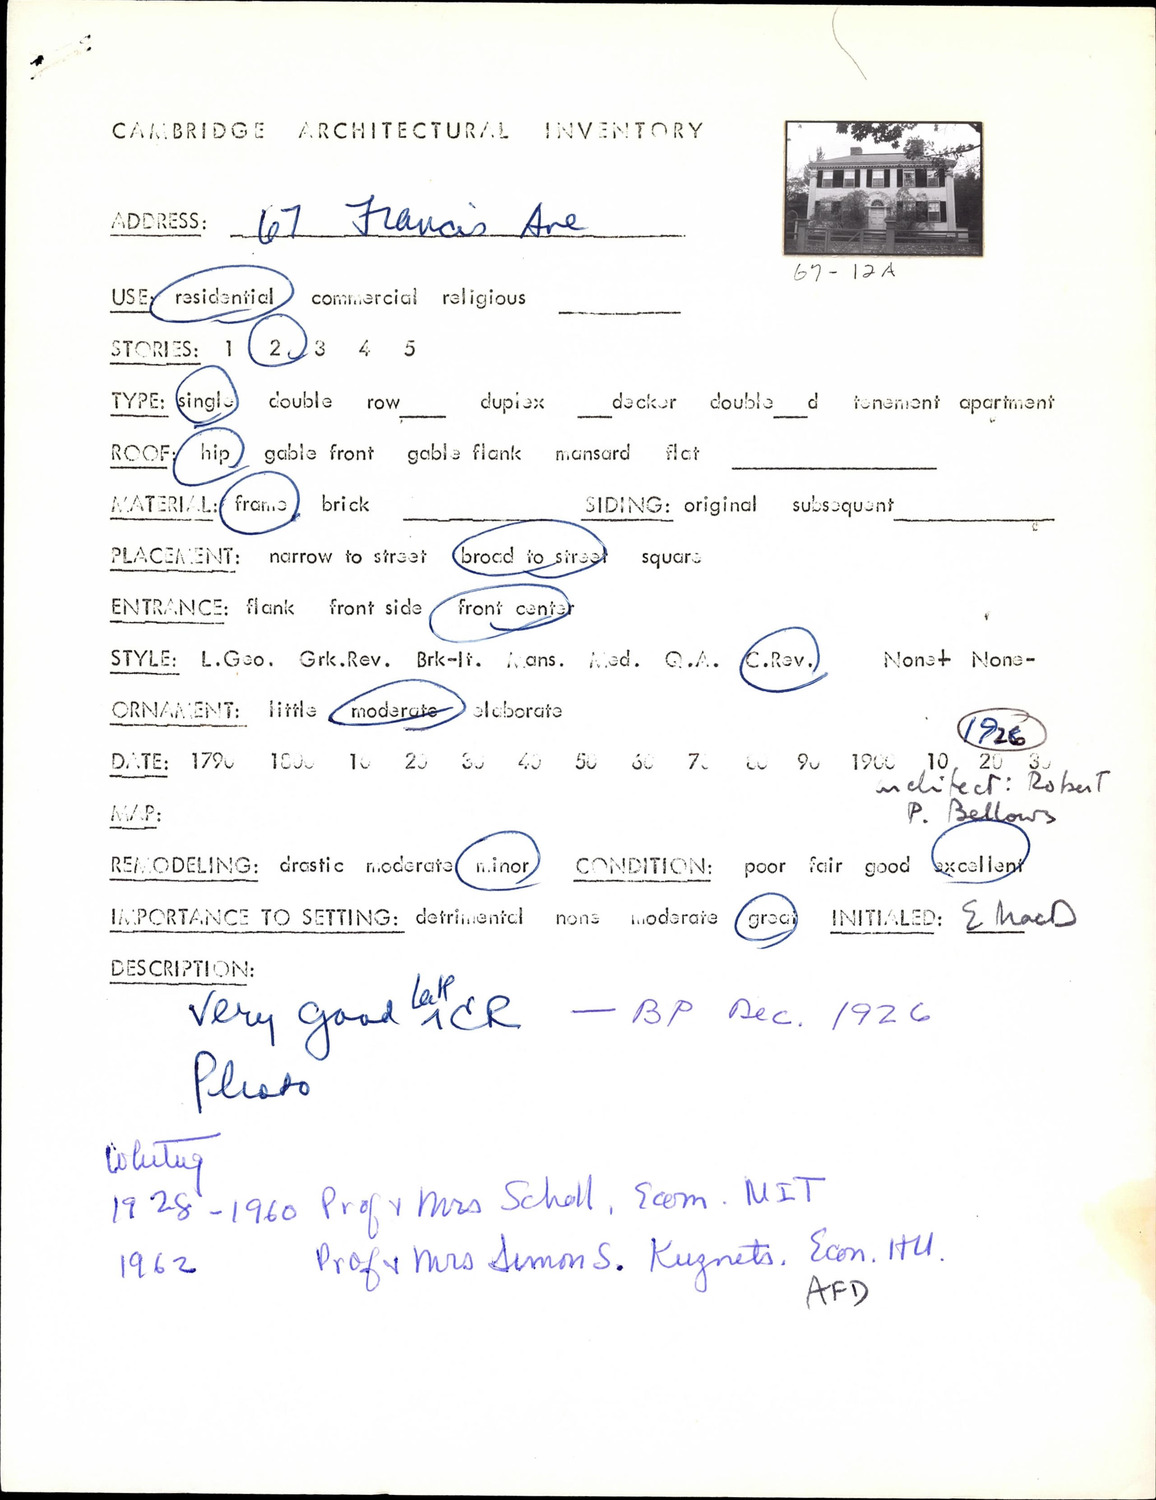 CAMBRIDGE ARCHITECTURAL INVENTORY
67-12A
ADDRESS: 67 Francis Ave
USE: residential commercial religious
STORIES: 1 2 3 4 5
TYPE: single double row____ duplex ___decker double___d tenement apartment
ROOF: hip gable front gable flank mansard flat
MATERIAL: frame brick SIDING: original subsequent
PLACEMENT: narrow to street broad to street square
ENTRANCE: flank front side front center
STYLE: L.Geo. Grk.Rev. Brk-It. Mans. Med. Q.A. C.Rev. None+ None-
ORNAMENT: little moderate elaborate
1926
DATE: 1790 1800 10 20 30 40 50 60 70 80 90 1900 10 20 30
architect: Robert
P. Bellows
MAP:
REMODELING: drastic moderate minor CONDITION: poor fair good excellent
IMPORTANCE TO SETTING: detrimental none moderate great INITIALED: E MacD
DESCRIPTION:
Very good late CR — BP Dec. 1926
Photo
Whiting
1928-1960 Prof & Mrs Scholl, Econ. MIT
1962 Prof & Mrs Simon S. Kuznets. Econ. HU.
AFD